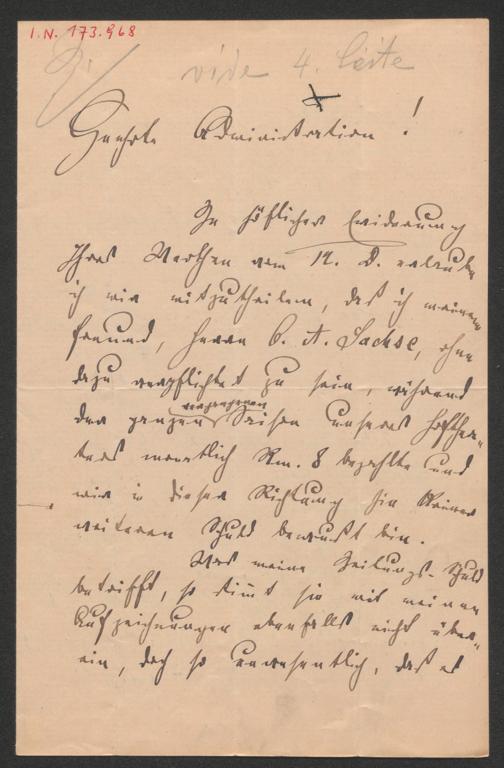 I.N. 173.968
vide 4. Seite
Geehrte Administration!
In höflicher Erwiderung
Ihres Werthen vom 12. d. erlaube
ich mir mitzutheilen, daß ich meinem
Freund, Herrn C. A. Sachse, ohne
dazu verpflichtet zu sein, während
vergangenen
der ganzen Saison unseres Hofthea-
ters monatlich Rm. 8 bezahlte und
mir in dieser Richtung hin keiner
weiteren Schuld bewußt bin.
Was meine Zeitungs-Schuld
betrifft, so stimmt sie mit meinen
Aufzeichnungen ebenfalls nicht über-
ein, doch so unwesentlich, daß es